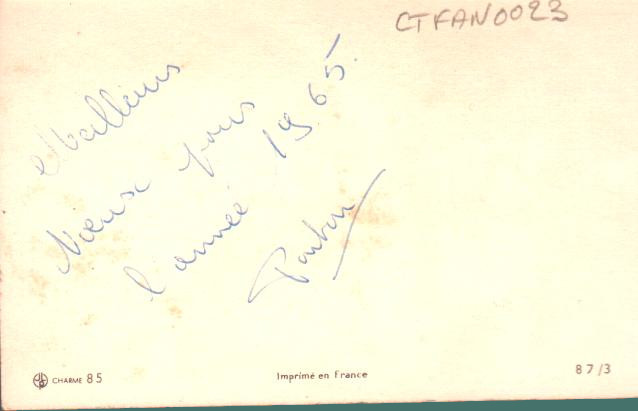 CTFAN0023
Meilleurs
Vœux pour
l'année 1965.
CHARME 85
Imprimé en France
87/3